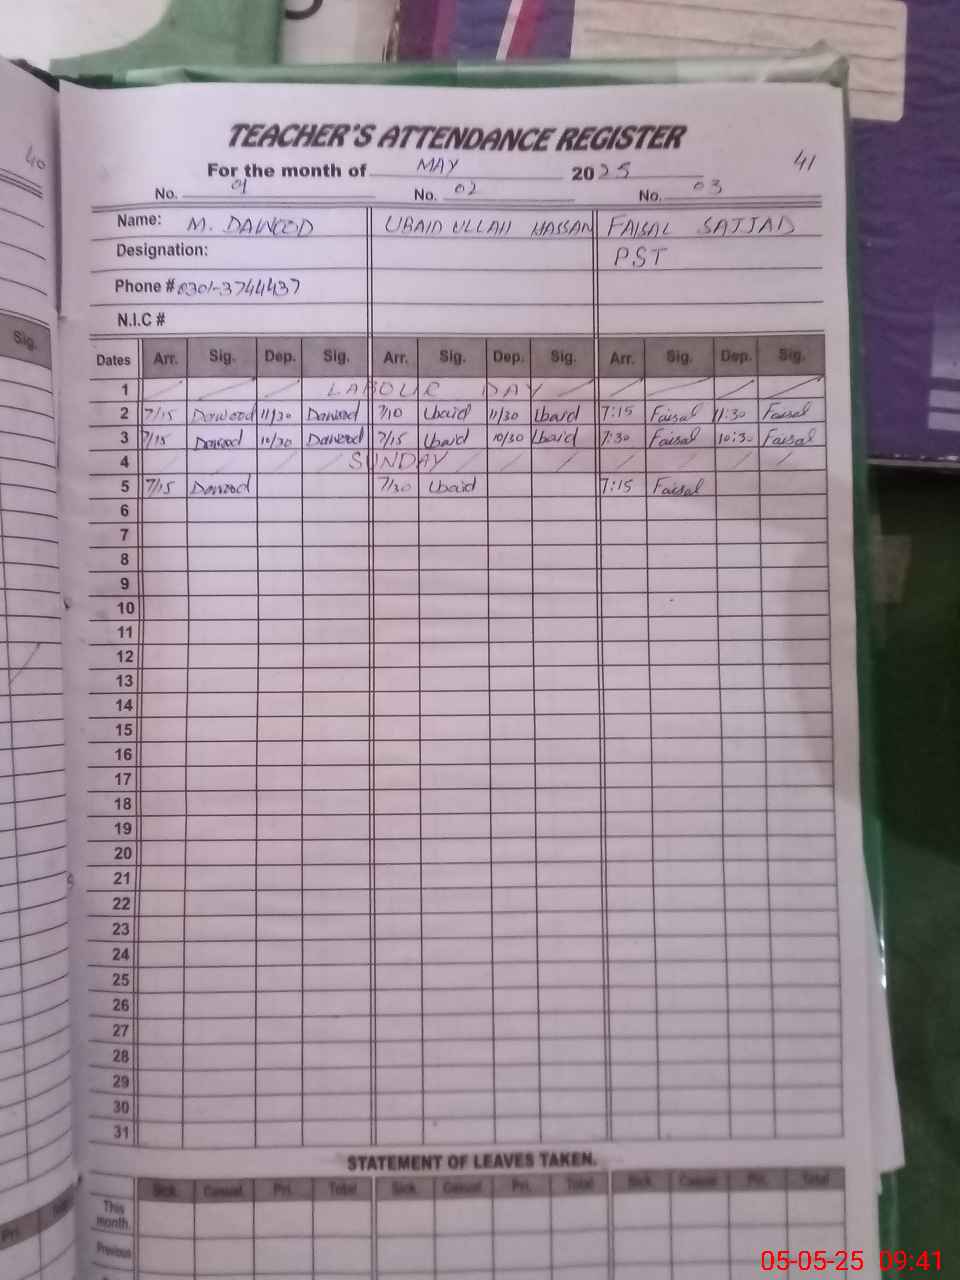 40
Sig.
TEACHER'S ATTENDANCE REGISTER
41
For the month of MAY 2025
No. 01 No. 02 No. 03
Name: M. DAWOOD UBAID ULLAH HASSAN FAISAL SAJJAD
Designation: PST
Phone # 0301-3744437
N.I.C #
Dates Arr. Sig. Dep. Sig. Arr. Sig. Dep. Sig. Arr. Sig. Dep. Sig.
1 LABOUR DAY
2 7/15 Dawood 11/30 Dawood 7/10 Ubaid 11/30 Ubaid 7:15 Faisal 11:30 Faisal
3 7/15 Dawood 10/30 Dawood 7/15 Ubaid 10/30 Ubaid 7:30 Faisal 10:30 Faisal
4 SUNDAY
5 7/15 Dawood 7/30 Ubaid 7:15 Faisal
6
7
8
9
10
11
12
13
14
15
16
17
18
19
20
21
22
23
24
25
26
27
28
29
30
31
STATEMENT OF LEAVES TAKEN.
Sick. Casual. Pri. Total Sick. Casual. Pri. Total Sick. Casual. Pri. Total
This month.
Previous
Pri.
05-05-25 09:41